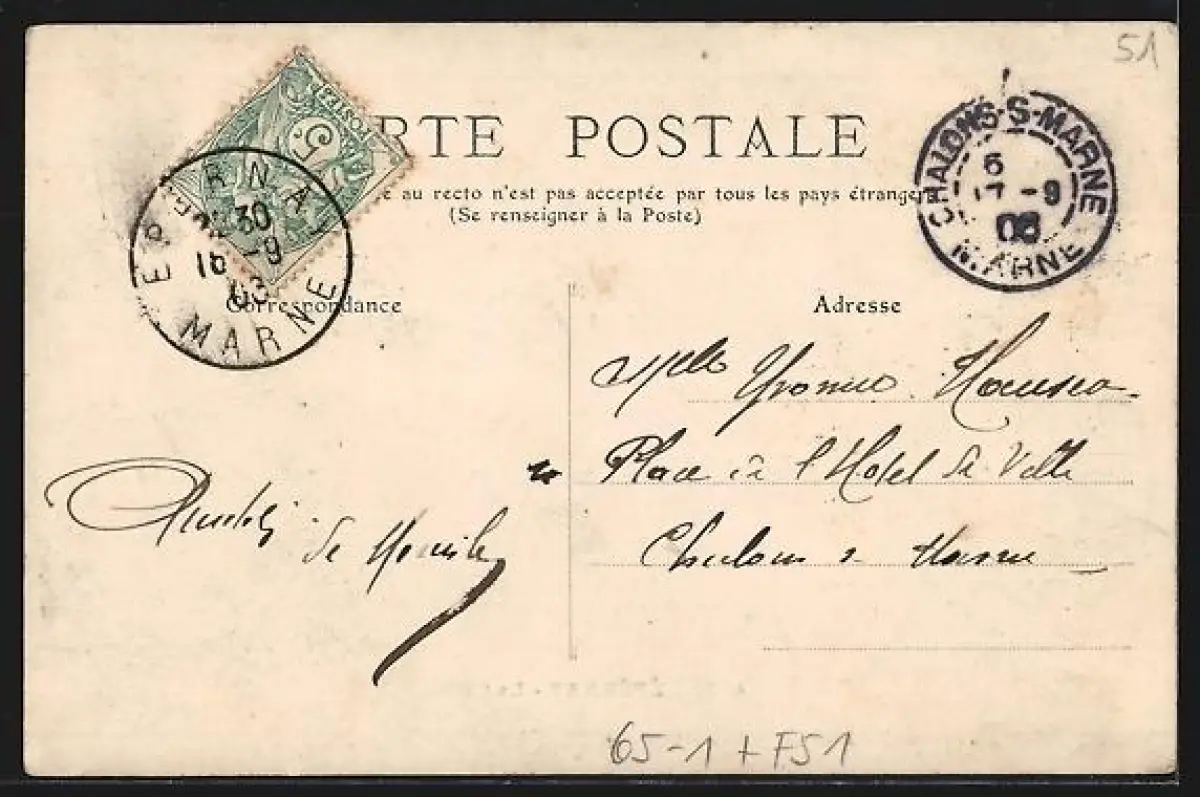 51
CARTE POSTALE
e au recto n'est pas acceptée par tous les pays étrangers
(Se renseigner à la Poste)
POSTES
5
EPERNAY
30
16 -9
03
MARNE
CHALONS-S-MARNE
6
17 -9
03
MARNE
Correspondance
Adresse
Mlle Yvonne
Place de l'Hotel de Ville
Chalons s Marne
de
65-1 + F51